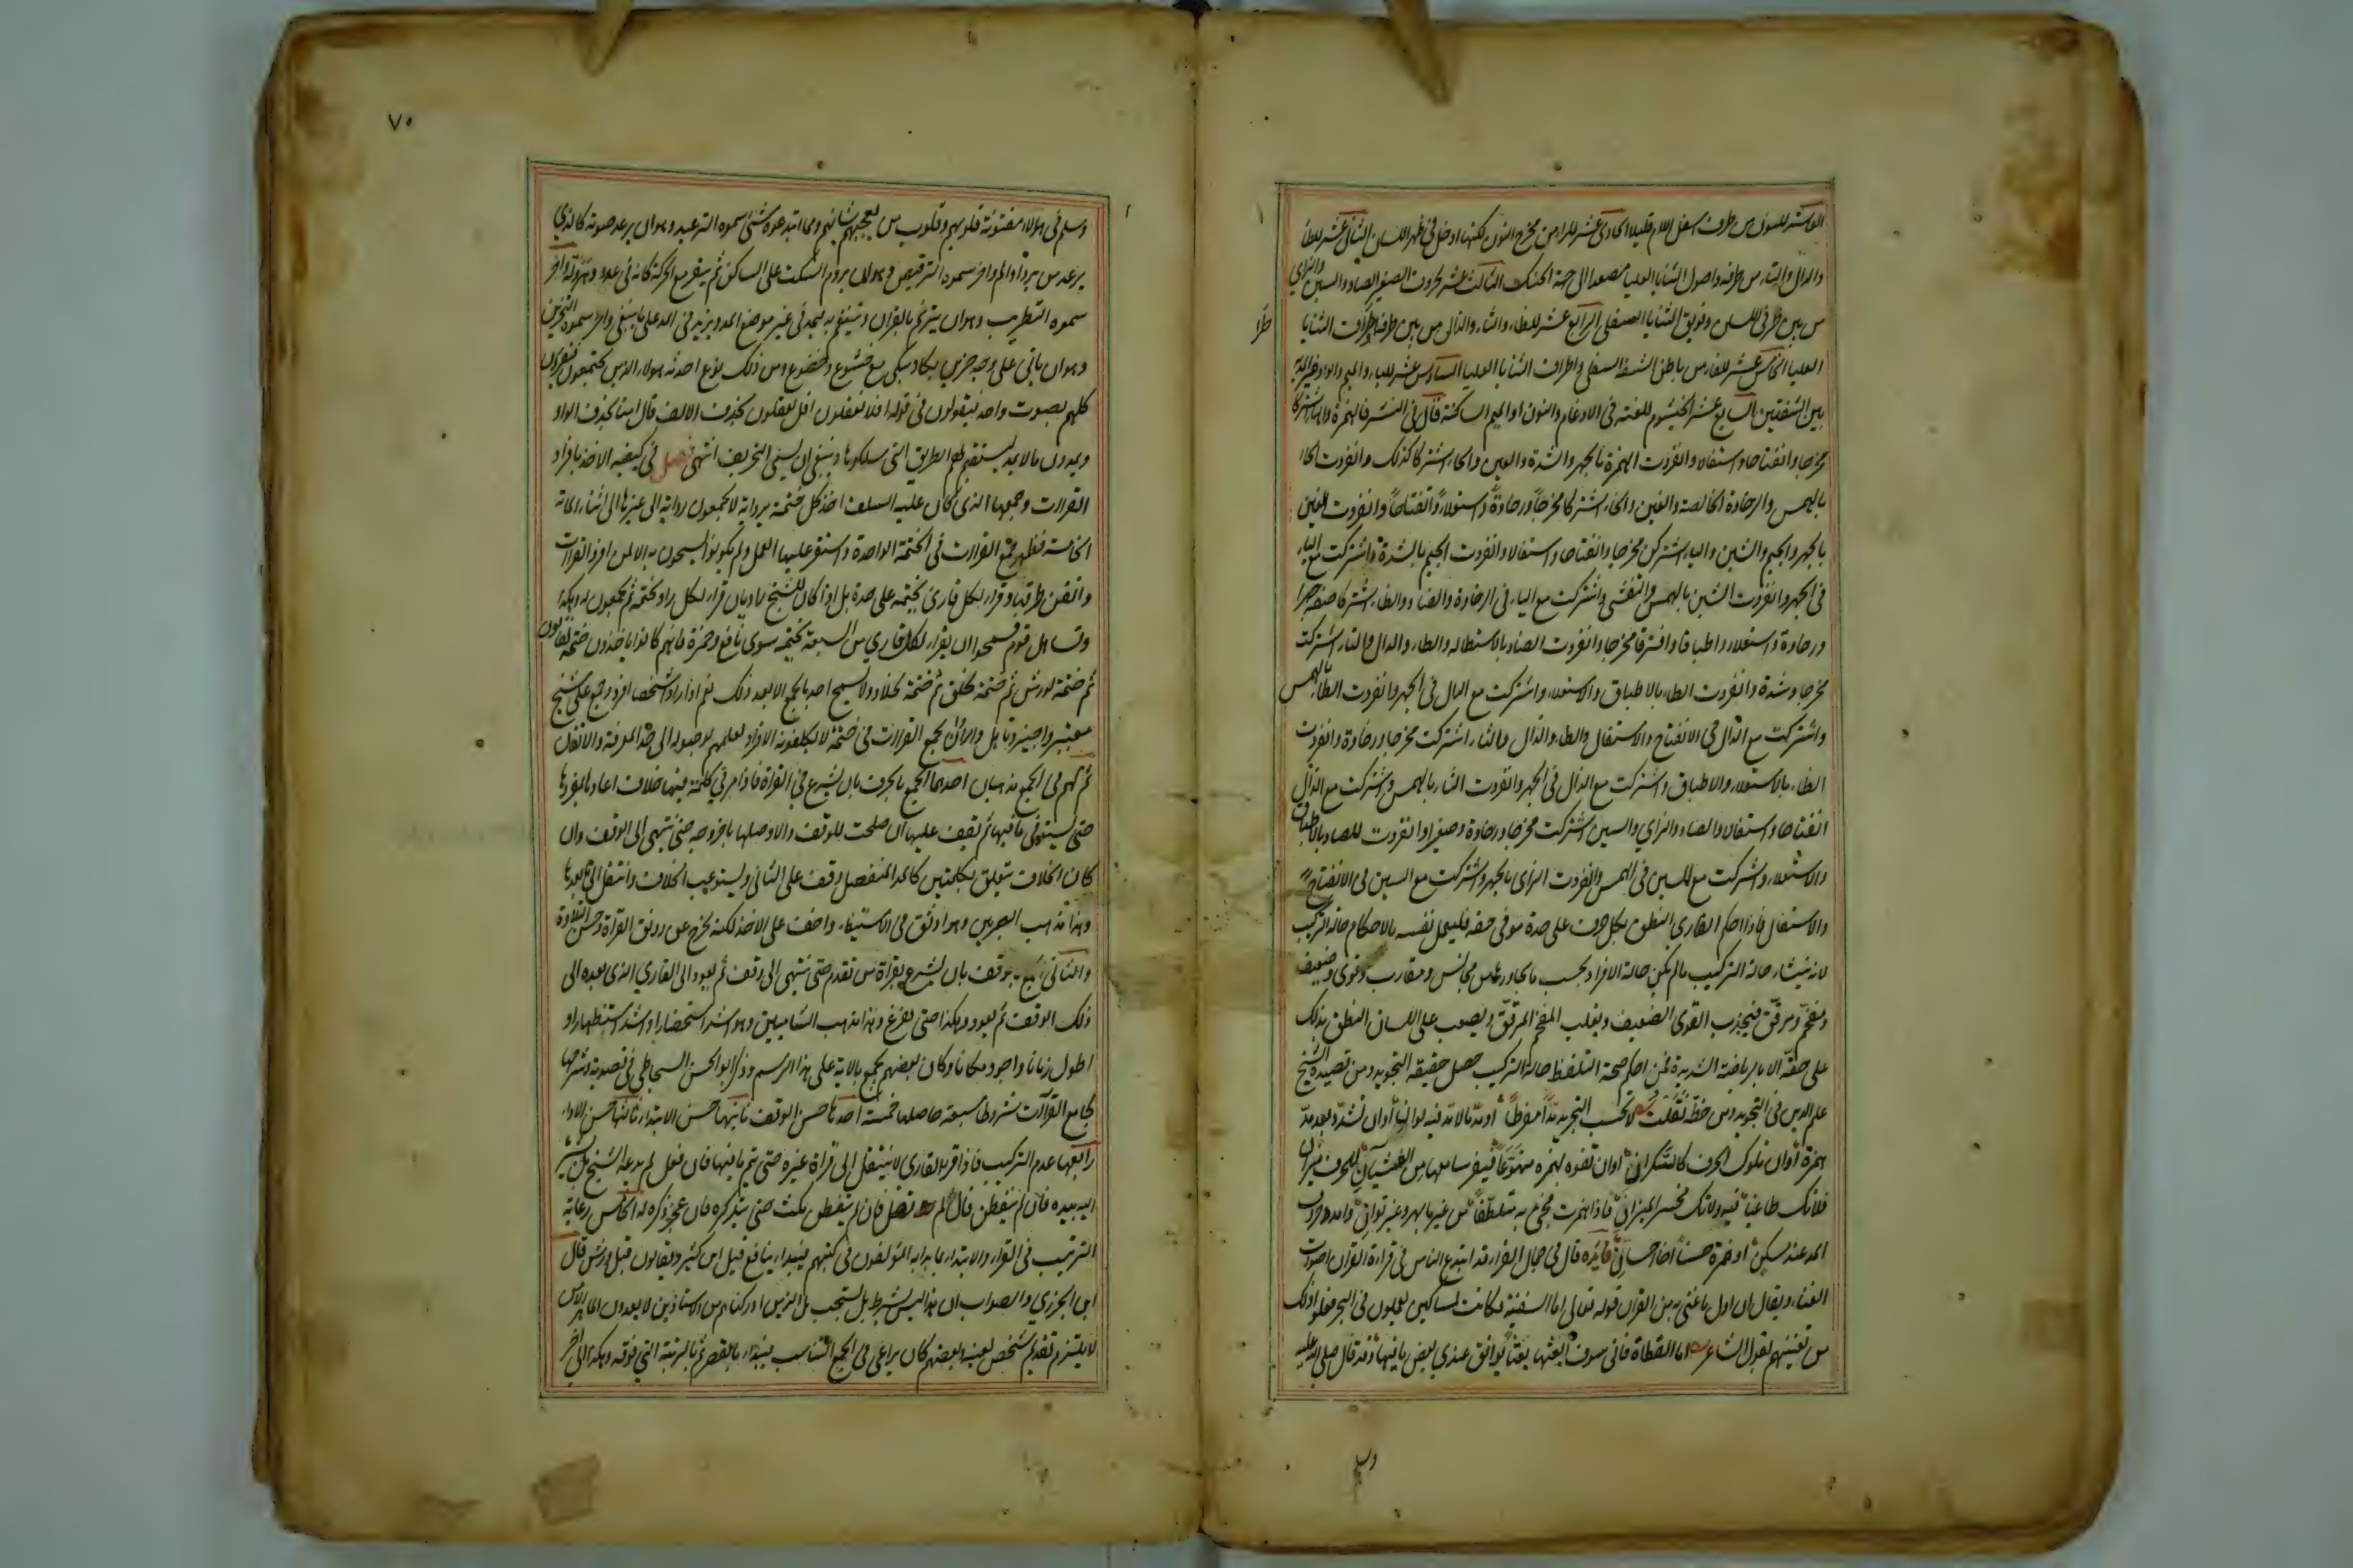 العاشر للنون من طرفه اسفل اللام قليلا الحادى عشر للراء من مخرج النون لكنها ادخل فى ظهر اللسان الثانى عشر للطاء
والدال والتاء من طرفه واصول الثنايا العليا مصعدا الى جهة الحنك الثالث عشر لحروف الصفير الصاد والسين والزاي
من بين طرفى اللسان وفويق الثنايا السفلى الرابع عشر للظاء والثاء والذال من بين طرفه واطراف الثنايا
العليا الخامس عشر للفاء من باطن الشفة السفلى واطراف الثنايا العليا السادس عشر للباء والميم والواو غير المدية
بين الشفتين السابع عشر الخيشوم للغنة فى الادغام والنون او الميم الساكنة قال فى النشر فالهمزة والهاء اشتركا
مخرجا وانفتاحا واستفالا وانفردت الهمزة بالجهر والشدة والعين والحاء اشتركا كذلك وانفردت الحاء
بالهمس والرخاوة الخالصة والغين والخاء اشتركا مخرجا ورخاوة واستعلاء وانفتاحا وانفردت الغين
بالجهر والجيم والشين والياء اشتركن مخرجا وانفتاحا واستفالا وانفردت الجيم بالشدة واشتركت مع الياء
فى الجهر وانفردت الشين بالهمس والتفشى واشتركت مع الياء فى الرخاوة والضاد والظاء اشتركا صفة جهرا
ورخاوة واستعلاء واطباقا وافترقا مخرجا وانفردت الضاد بالاستطالة والطاء والدال والتاء اشتركت
مخرجا وشدة وانفردت الطاء بالاطباق والاستعلاء واشتركت مع الدال فى الجهر وانفردت التاء بالهمس
واشتركت مع الدال فى الانفتاح والاستفال والظاء والذال والثاء اشتركت مخرجا ورخاوة وانفردت
الظاء بالاستعلاء والاطباق واشتركت مع الذال فى الجهر وانفردت الثاء بالهمس واشتركت مع الذال
انفتاحا واستفالا والصاد والزاي والسين اشتركت مخرجا ورخاوة وصفيرا وانفردت الصاد بالاطباق
والاستعلاء واشتركت مع السين فى الهمس وانفردت الزاى بالجهر واشتركت مع السين فى الانفتاح
والاستفال فاذا احكم القارى النطق بكل حرف على حدة موفى حقه فليعمل نفسه بالاحكام حالة التركيب
لانه ينشاء حالة التركيب ما لم يكن حالة الافراد بحسب ما يجاورها من مجانس ومقارب وقوى وضعيف
ومفخم ومرقق فيجذب القوى الضعيف ويغلب المفخم المرقق ويصعب على اللسان النطق بذلك
على حقه الا بالرياضة الشديدة فمن احكم صحة التلفظ حالة التركيب حصل حقيقة التجويد ومن قصيدة الشيخ
علم الدين فى التجويد ومن خطه نقلت لا تحسب التجويد مدا مفرطا او مد ما لا مد فيه لوان او ان تشدد بعد مد
همزة او ان تلوك الحرف كالسكران او ان تفوه بهمزة متهوعا فيفر سامعها من الغثيان للحرف ميزان
فلا تك طاغيا فيه ولا تك مخسر الميزان فاذا همزت فجئ به متلطفا من غير ما بهر وغير توان وامدد حروف
المد عند مسكن او همزة حسنا اخا احسان فائدة قال فى جمال القراء قد ابتدع الناس فى قراءة القران اصوات
الغناء ويقال ان اول ما غنى به من القران قوله تعالى اما السفينة فكانت لمساكين يعملون فى البحر نقلوا ذلك
من تغنيهم بقول الشاعر اما القطاة فانى سوف انعتها نعتا يوافق عندي بعض ما فيها وقد قال صلى الله عليه
طرا
وسلم
٧٠
وسلم فى هولاء مفتونة قلوبهم وقلوب من يعجبهم شانهم ومما ابتدعوه شئ سموه الترعيد وهو ان يرعد صوته كالذي
يرعد من برد او الم واخر سموه الترقيص وهو ان يروم السكت على الساكن ثم ينفر مع الحركة كانه فى عدو وهرولة واخر
سموه التطريب وهو ان يترنم بالقران ويتنغم به فيمد فى غير موضع المد ويزيد فى المد على ما ينبغى واخر سموه التحزين
وهو ان ياتى على وجه حزين يكاد يبكى مع خشوع وخضوع ومن ذلك نوع احدثه هولاء الذين يجتمعون فيقرون
كلهم بصوت واحد فيقولون فى قوله افلا تعقلون افل تعقلون بحذف الالف قال امنا بحذف الواو
ويمدون ما لا يمد ليستقيم لهم الطريق التى سلكوها وينبغى ان يسمى التحريف انتهى فصل فى كيفية الاخذ بافراد
القراات وجمعها الذى كان عليه السلف اخذ كل ختمة برواية لا يجمعون رواية الى غيرها الى اثناء المائة
الخامسة فظهر جمع القراات فى الختمة الواحدة واستقر عليها العمل ولم يكونوا يسمحون به الا لمن افرد القراات
واتقن طرقها وقراء لكل قارئ بختمة على حدة بل اذا كان للشيخ راويان قراء لكل راو بختمة ثم يجمعون له وهكذا
وتساهل قوم فسمحوا ان يقراء لكل قاري من السبعة بختمة سوى نافع وحمزة فانهم كانوا ياخذون ختمة لقالون
ثم ختمة لورش ثم ختمة لخلف ثم ختمة لخلاد ولا يسمح احد بالجمع الا بعد ذلك نعم اذا راوا شخصا افرد وجمع على شيخ
معتبر واجيز وتاهل واراد ان يجمع القراات فى ختمة لا يكلفونه الافراد لعلمهم بوصوله الى حد المعرفة والاتقان
ثم لهم فى الجمع مذهبان احدهما الجمع بالحرف بان يشرع فى القراة فاذا مر فى كلمة فيها خلاف اعادها بمفردها
حتى يستوفى ما فيها ثم يقف عليها ان صلحت للوقف والا وصلها باخر وجه حتى ينتهى الى الوقف وان
كان الخلاف يتعلق بكلمتين كالمد المنفصل وقف على الثانى واستوعب الخلاف وانتقل الى ما بعدها
وهذا مذهب المصريين وهو اوثق فى الاستيفاء واخف على الاخذ لكنه يخرج عن رونق القراة وحسن التلاوة
والثانى الجمع بالوقف بان يشرع بقراة من تقدم حتى ينتهى الى وقف ثم يعود الى القاري الذى بعده الى
ذلك الوقف ثم يعود وهكذا حتى يفرغ وهذا مذهب الشاميين وهو اشد استحضارا واشد استظهارا و
اطول زمانا واجود مكانا وكان بعضهم يجمع بالاية على هذا الرسم وذكر ابو الحسن السجاطى فى قصيدته وشرحها
لجامع القراات شروطا سبعة حاصلها خمسة احدها حسن الوقف ثانيها حسن الابتداء ثالثها حسن الاداء
رابعها عدم التركيب فاذا قراء لقارئ لا ينتقل الى قراة غيره حتى يتم ما فيها فان فعل لم يدعه الشيخ بل يشير
اليه بيده فان لم يتفطن قال لم تصل فان لم يتفطن مكث حتى يتذكر فان عجز ذكره له الخامس رعاية
الترتيب فى القراة والابتداء بما بدا به المؤلفون فى كتبهم فيبداء بنافع قبل ابن كثير وبقالون قبل ورش قال
ابن الجزري والصواب ان هذا ليس بشرط بل مستحب بل الذين ادركناهم من الاستاذين لا يعدون الماهر الا من
لا يلتزم تقديم شخص بعينه وبعضهم كان يراعى فى الجمع التناسب فيبداء بالقصر ثم بالرتبة التى فوقه وهكذا الى اخر